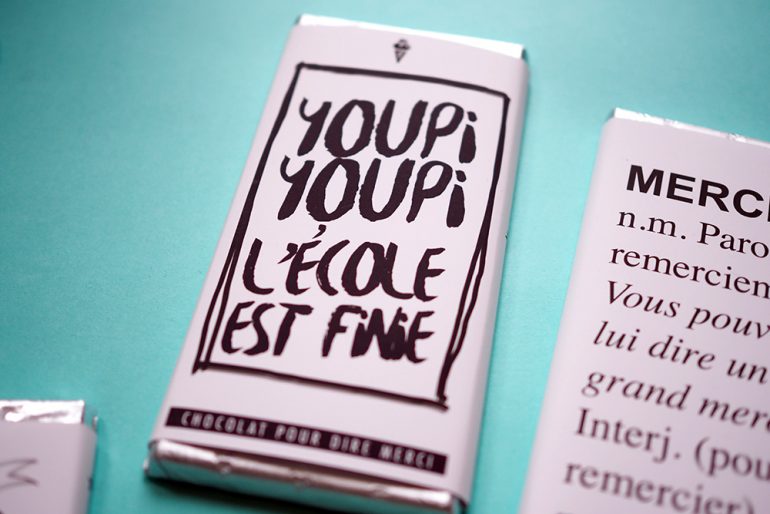 YOUPi
YOUPi
L'ÉCOLE
EST FiNiE
CHOCOLAT POUR DIRE MERCI
MERCI
n.m. Paro
remerciem
Vous pouv
lui dire un
grand merc
Interj. (pou
remercier)